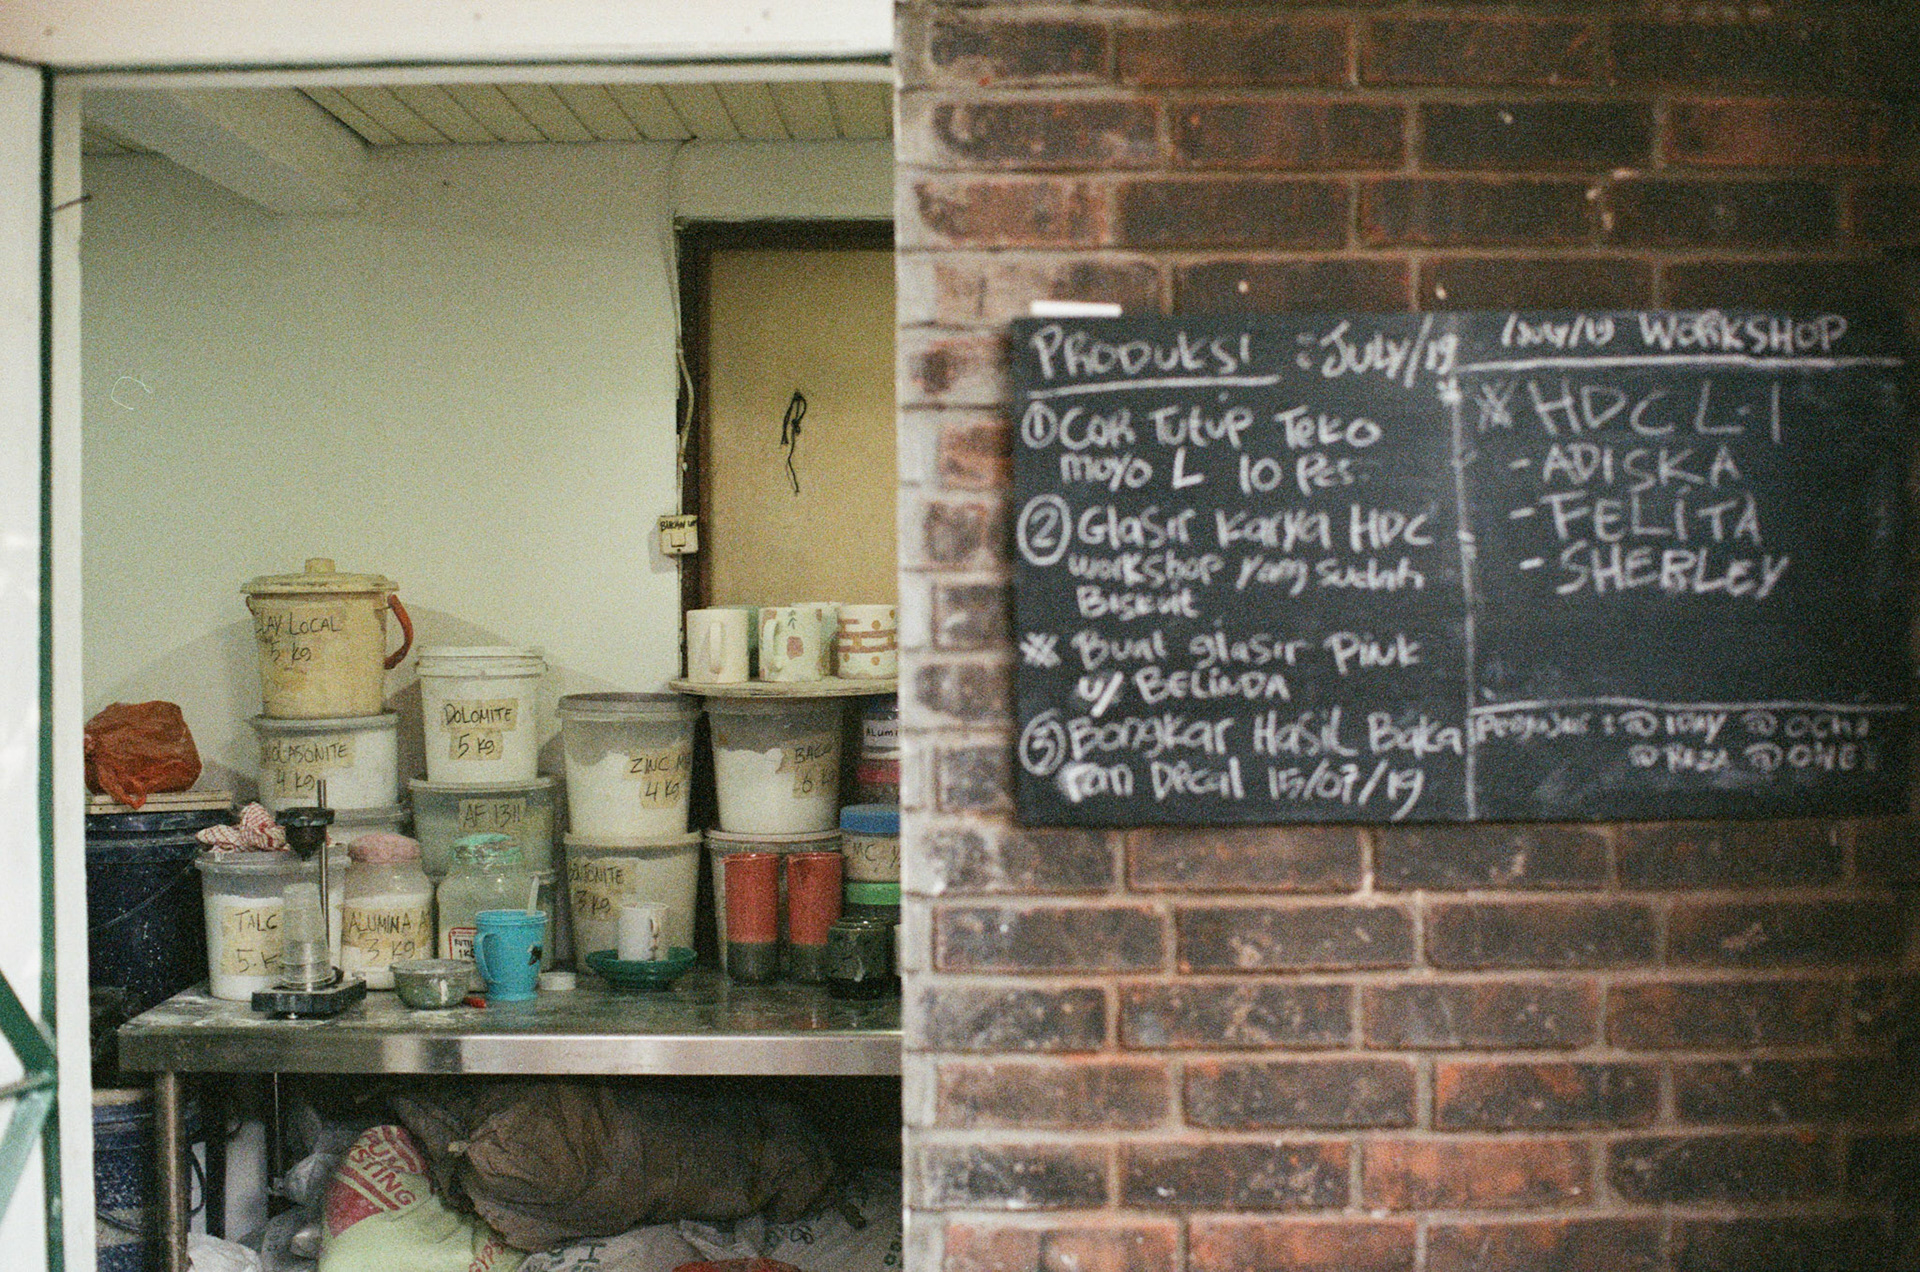 PRODUKSI : JULY/19
① COR TUTUP TEKO
moyo L 10 Pcs.
② Glasir Karya HDC
workshop yang sudah
Biskuit
※ Buat glasir Pink
u/ BELINDA
③ Bongkar Hasil Baka
ran Decal 15/07/19
/July/19 WORKSHOP
※ HDC L-1
- ADISKA
- FELITA
- SHERLEY
CLAY LOCAL
5 kg
DOLOMITE
5 kg
4 kg
AF 1311
ZINC
4 kg
6
ALUMI
MC
3 kg
TALC
5 K
ALUMINA A
3 kg